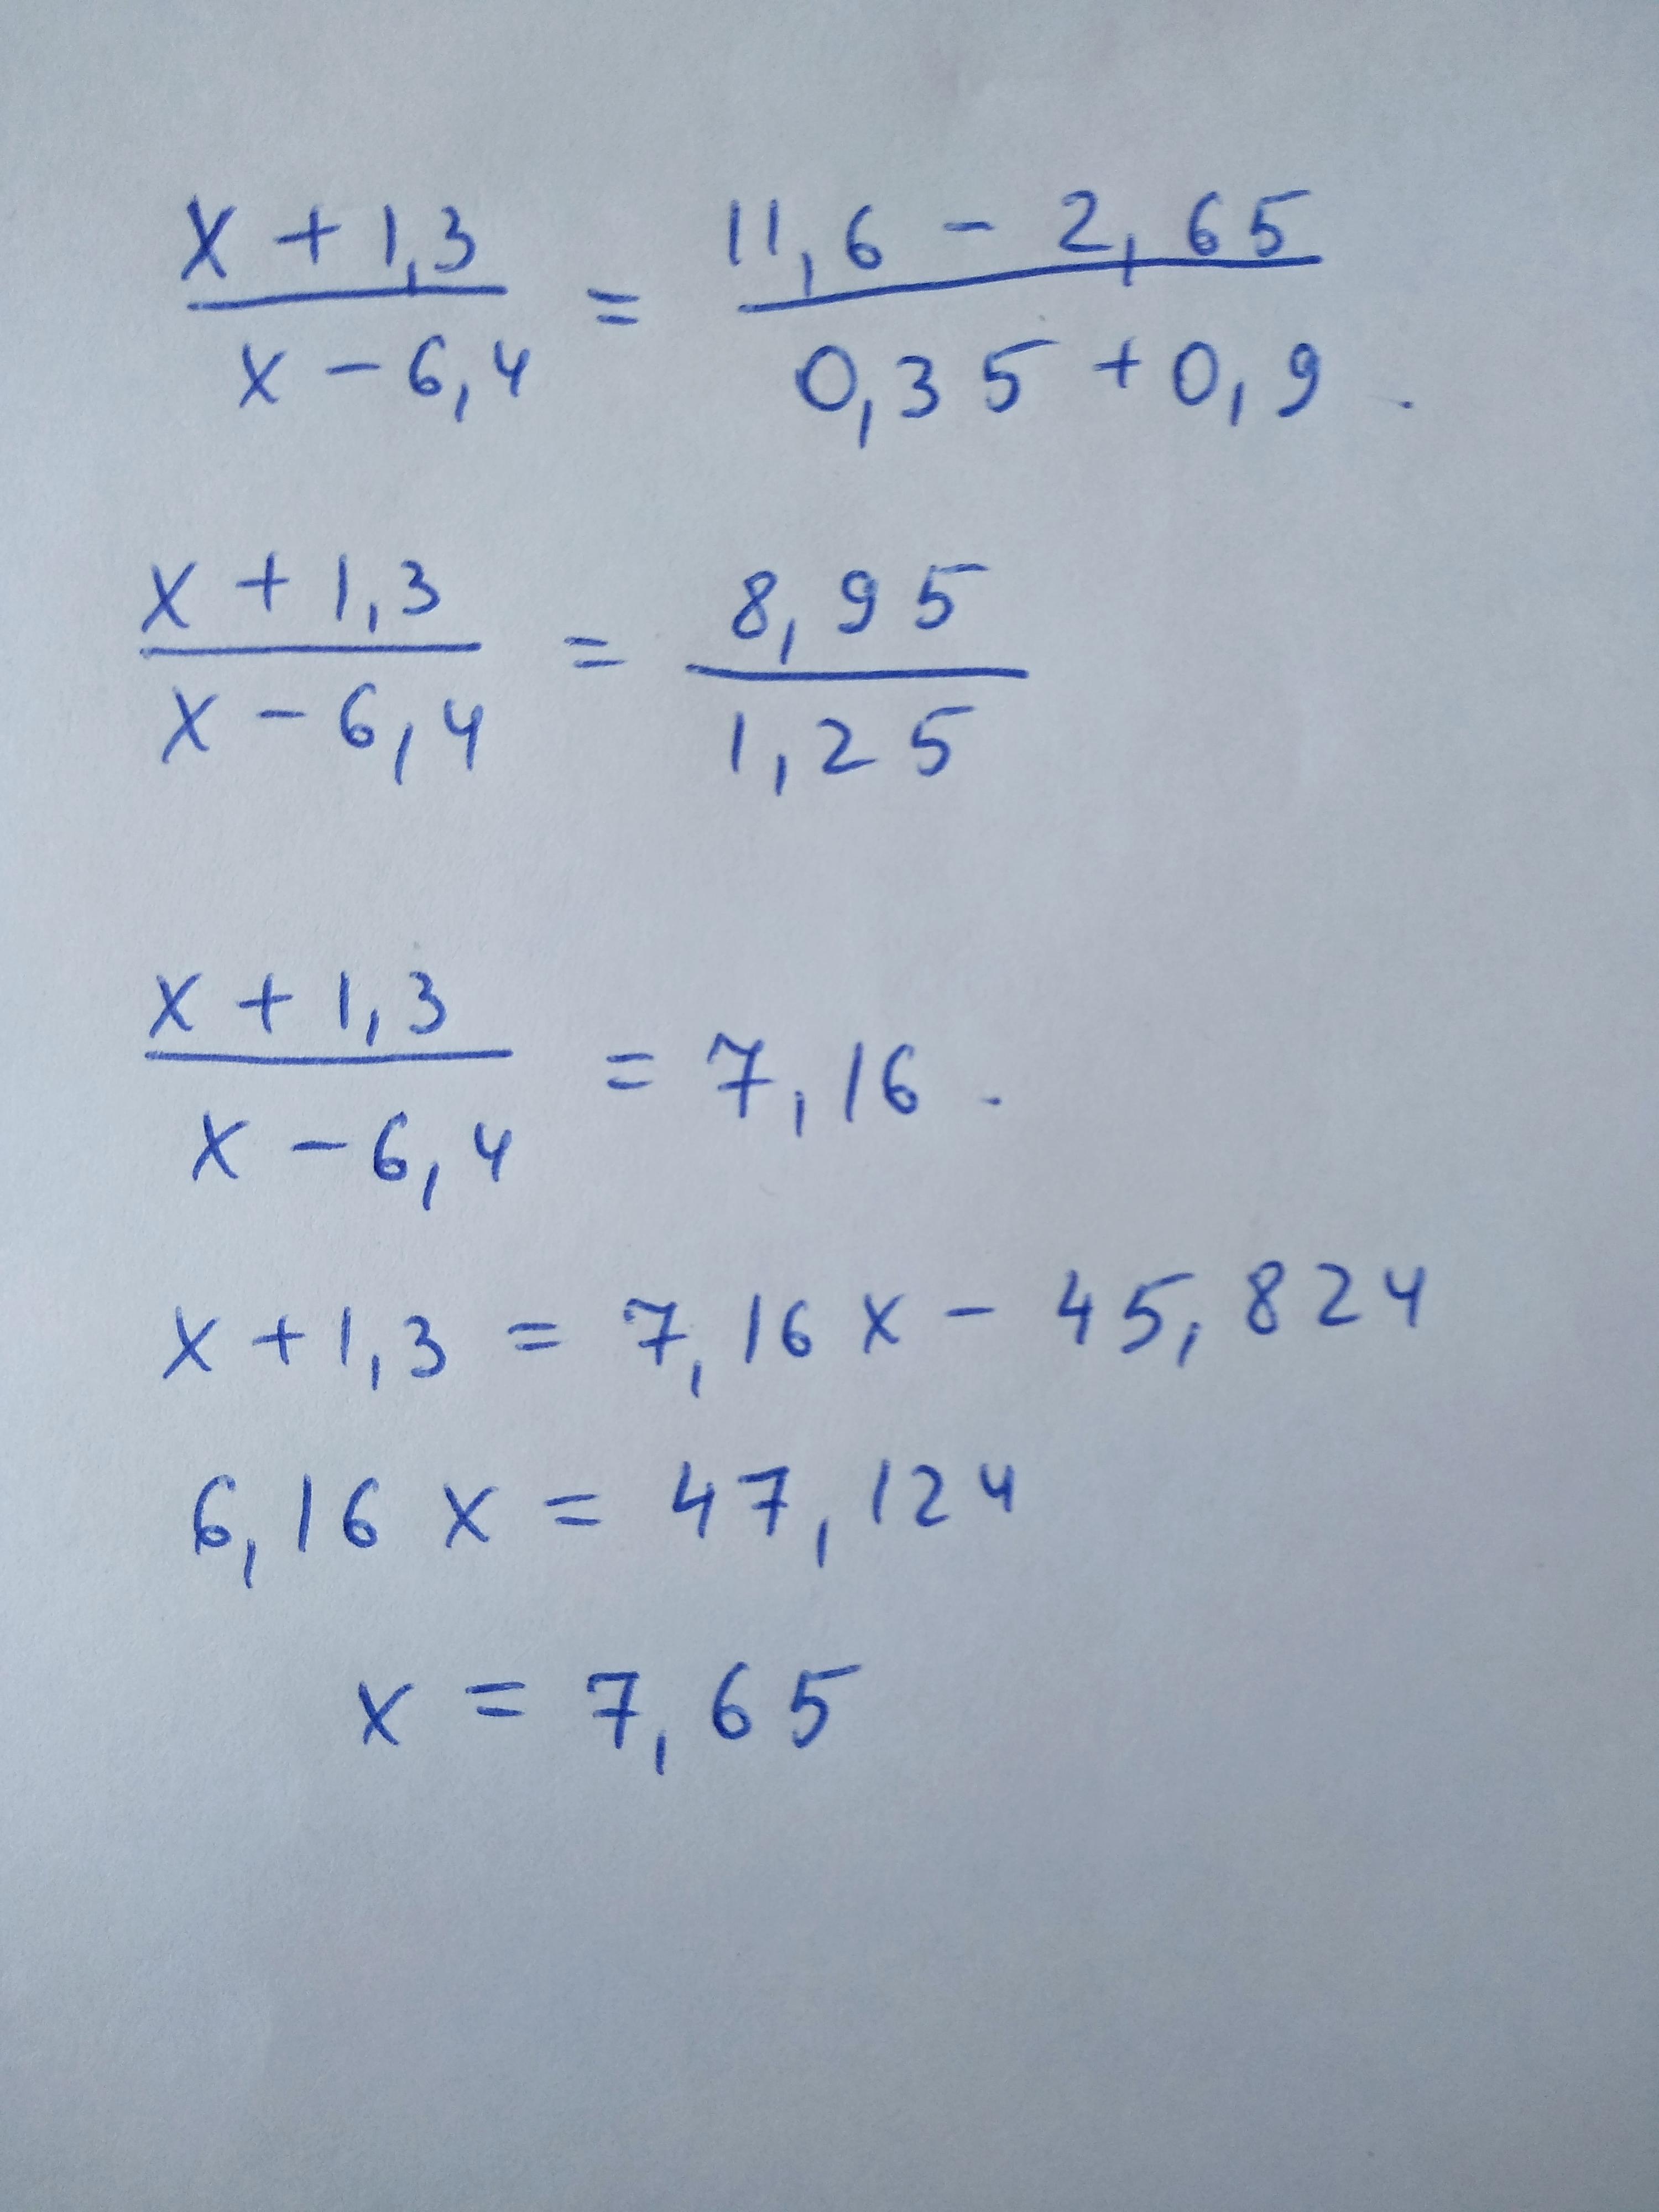 x + 1,3 / x - 6,4 = 11,6 - 2,65 / 0,35 + 0,9 .
x + 1,3 / x - 6,4 = 8,95 / 1,25
x + 1,3 / x - 6,4 = 7,16 .
x + 1,3 = 7,16 x - 45,824
6,16 x = 47,124
x = 7,65